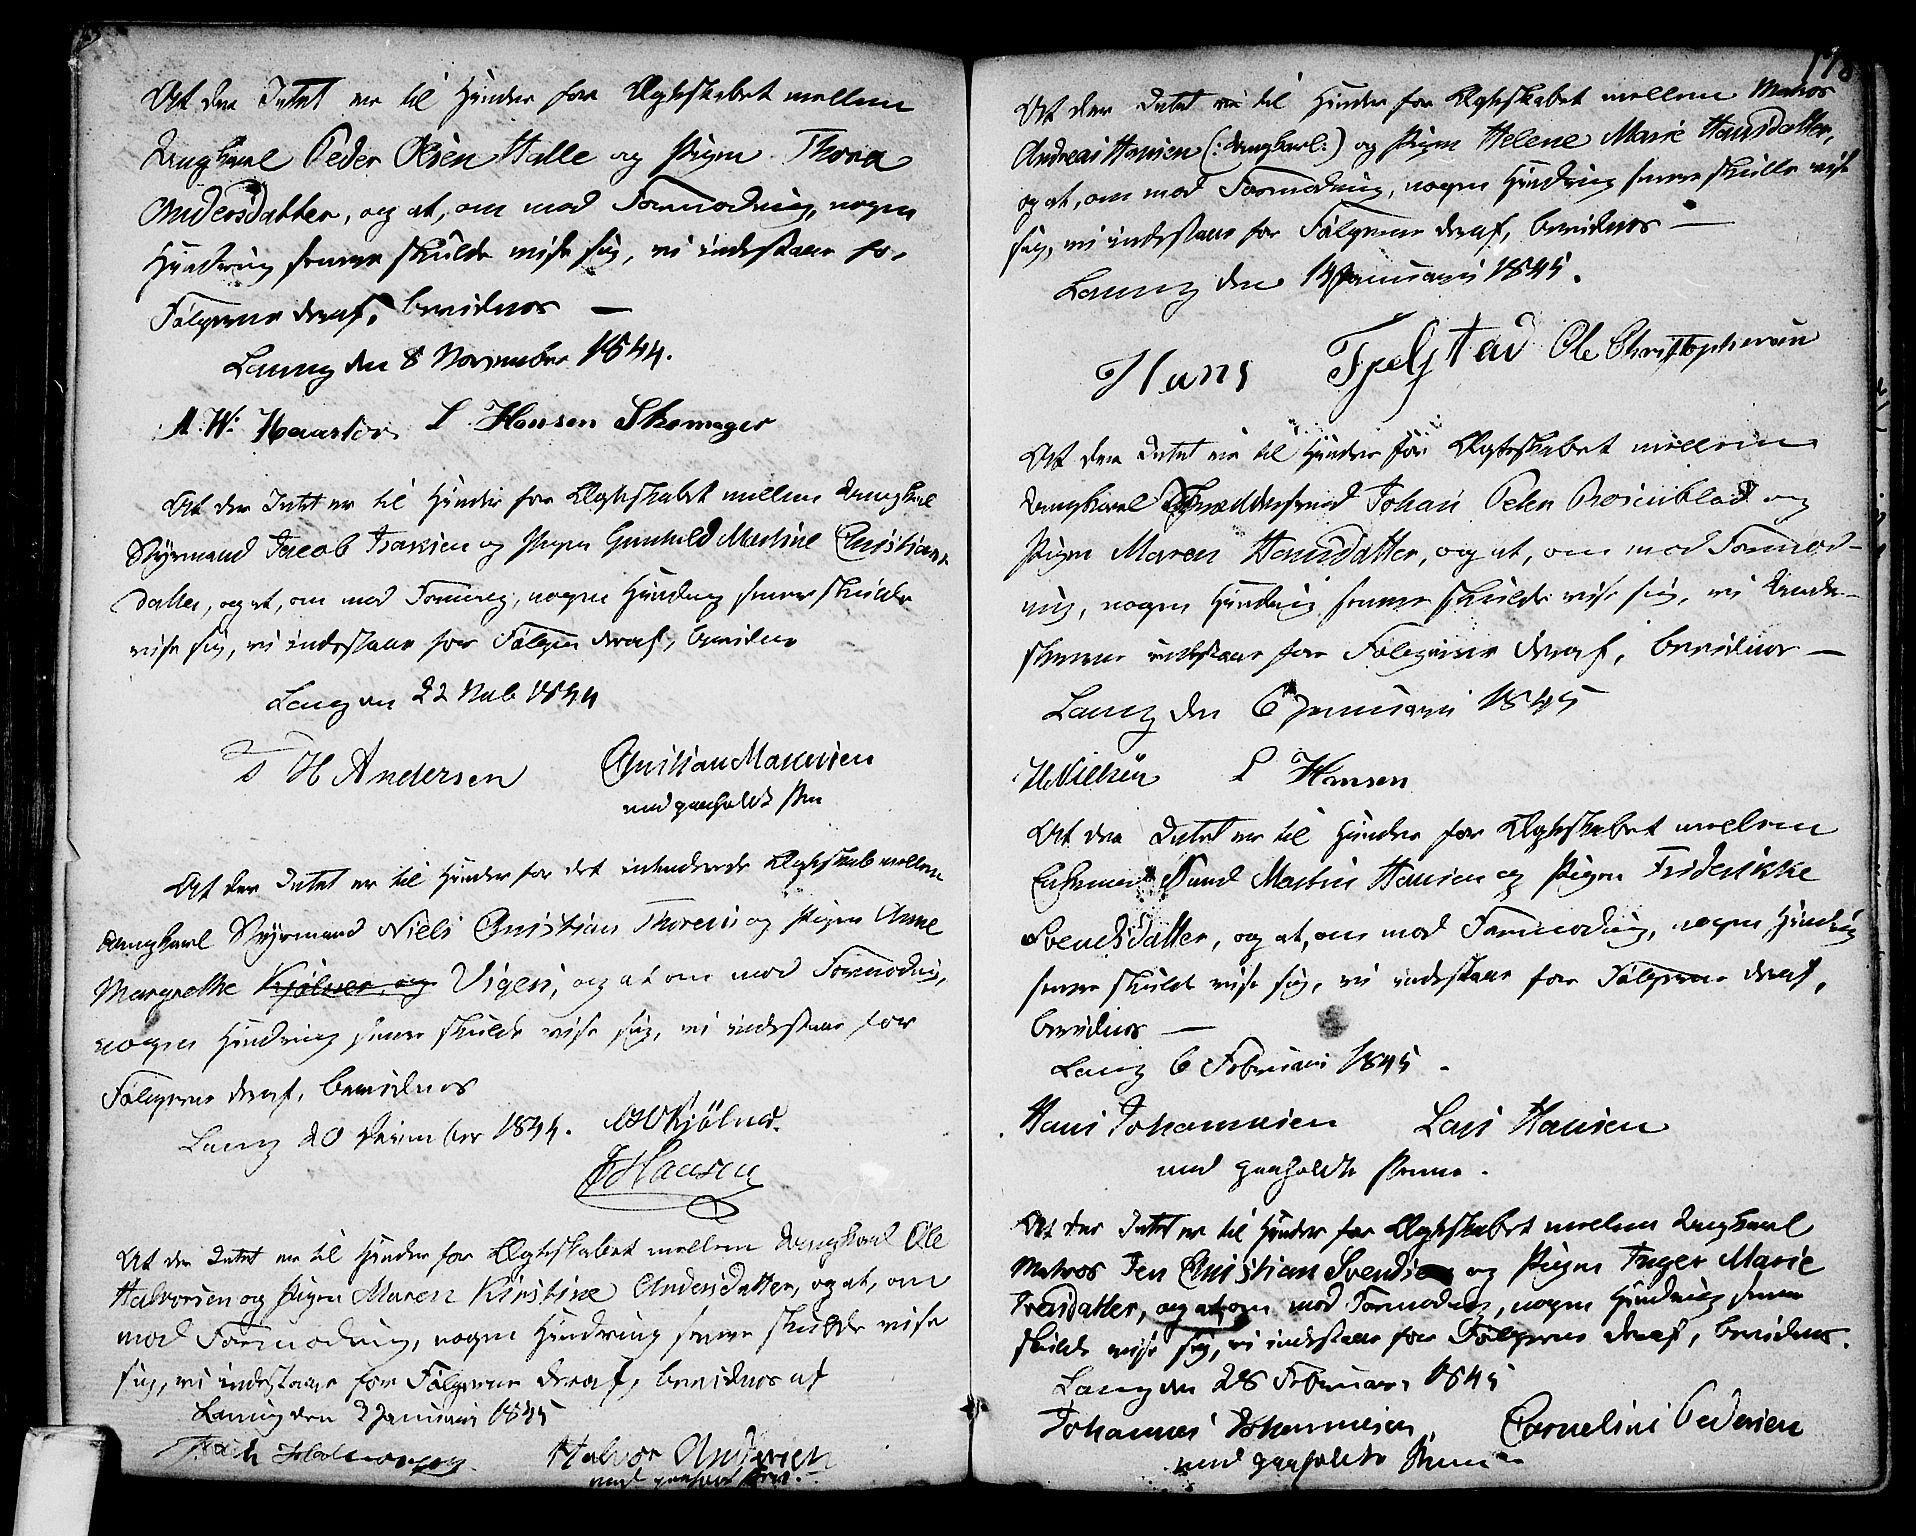 At der Intet er til Hinder for Ægteskabet mellem
Ungkarl Peder Olsen Halle og Pigen Thora
Andersdatter, og at, om mod Formodning, nogen
Hindring senere skulde vise sig, vi indestaae for
Følgerne deraf, bevidnes —
Laurvig den 8 November 1844.
L. Hansen Skomager
At der Intet er til Hinder for Ægteskabet mellem Ungkarl
Styrmand Jacob Isaksen og Pigen Gunhild Martine Christians
datter, og at, om mod Formning, nogen Hindring senere skulde
vise sig, vi indestaae for Følgen deraf, bevidnes
22 1844
H Andersen Christian
med paaholdt Pen
At der Intet er til Hinder for det intenderede Ægteskab mellem
Ungkarl Styrmand Niels Christian Thoresen og Pigen Anne
Margrethe Kjølner, og Vigen, og at om mod Formodning,
nogen Hindring senere skulde vise sig, vi indestaae for
Følgerne deraf, bevidnes
Laurvig 20 December 1844. Kjølner.
Hansen
At der Intet er til Hinder for Ægteskabet mellem Ungkarl Ole
Halvorsen og Pigen Maren Kirstine Andersdatter, og at, om
mod Formodning, nogen Hindring senere skulde vise
sig, vi indestaae for Følgerne deraf, bevidnes af
Laurvig den 2 Januari 1845
Halvor Andersen
med paaholdt Pen.
178
At der Intet er til Hinder for Ægteskabet mellem Matros
Andreas Hansen (: Ungkarl :) og Pigen Helene Marie Hansdatter,
og at, om mod Formodning, nogen Hindring senere skulle vise
sig, vi indestaae for Følgerne deraf, bevidnes —
Laurvig den 14 Januari 1845.
Hans Fjelstad Ole Christophersen
At der Intet er til Hinder for Ægteskabet mellem
Ungkarl Johan Peder Rosenblad og
Pigen Maren Hansdatter, og at, om mod Formod-
ning, nogen Hindring senere skulde vise sig, vi Under-
skrevne indestaae for Følgerne deraf, bevidner —
Laurvig den 6 Januari 1845
H Nielsen L Hansen
At der Intet er til Hinder for Ægteskabet mellem
Enkemand Knud Martin Hansen og Pigen Friderikke
Svendsdatter, og at, om mod Formodning, nogen Hindring
senere skulde vise sig, vi indestaae for Følgerne deraf,
bevidnes —
Laurvig 6 Februari 1845.
Hans Johannesen Lars Hansen
med paaholdte Penne.
At der Intet er til Hinder for Ægteskabet mellem Ungkarl
Matros Jen Christian Svendsen og Pigen Inger Marie
Iversdatter, og at om mod Formodning, nogen Hindring senere
skulde vise sig, vi indestaae for Følgerne deraf, bevidnes.
Laurvig den 28 Februari 1845
Johannes Johannesen, Cornelius Pedersen
med paaholdte Penne